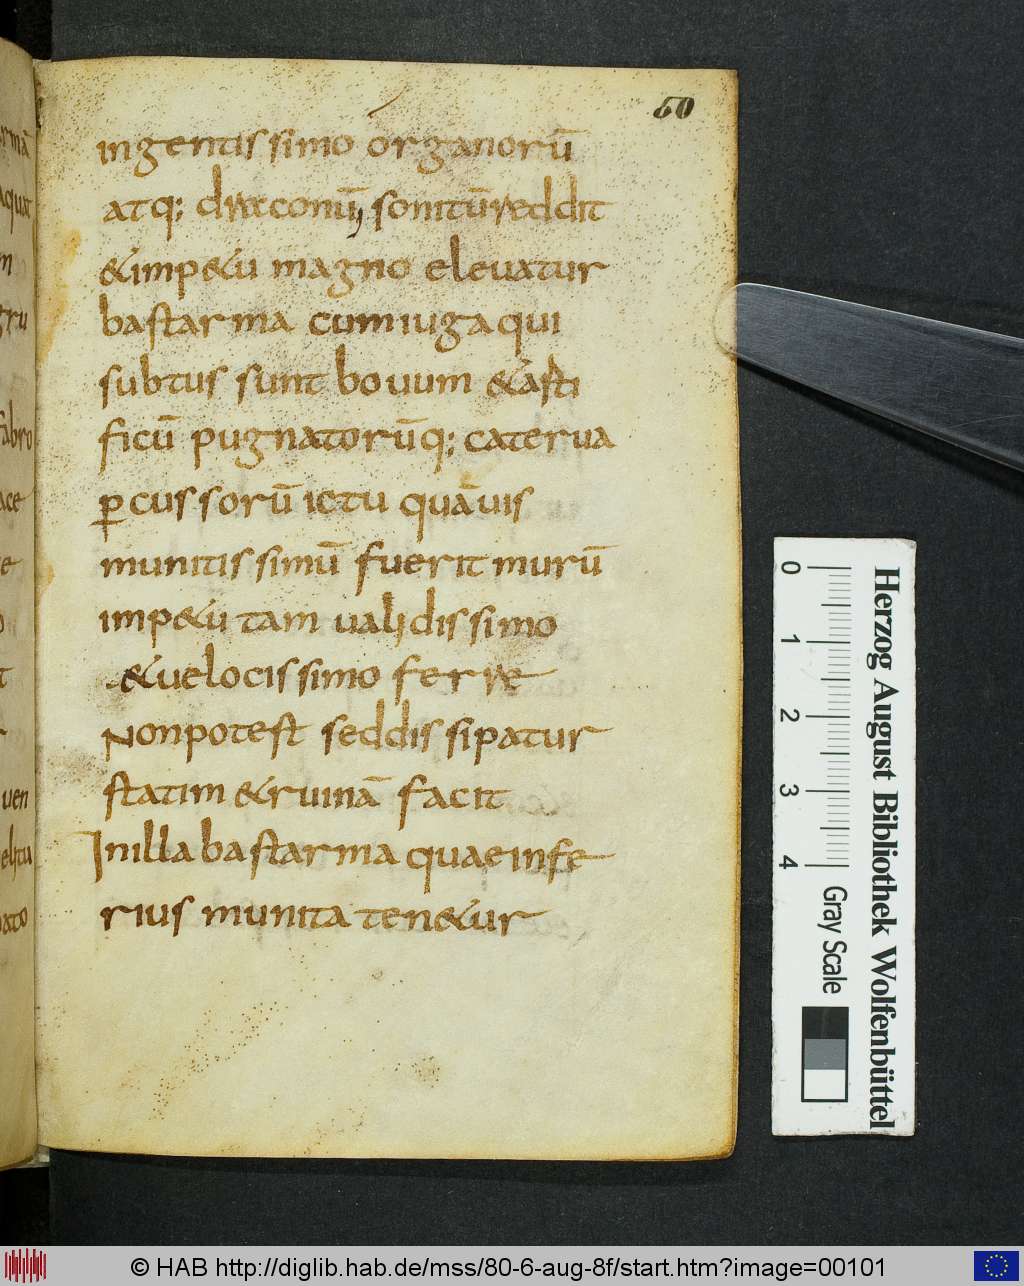 50
ingentissimo organorū
atq; draconū, sonitū reddit
& imp&u magno elevatur
bastarma cum iuga qui
subtus sunt bouum & asti
ficū pugnatorūq; caterua
p̱cussorū ictu quāuis
munitissimū fuerit murū
imp&u tam ualidissimo
& uelocissimo ferre
Non potest sed dissipatur
statim & ruinā facit
In illa bastarma quae infe
rius munita ten&ur
rmā
aquat
m
gru
fabro
ace
e
o
t
uen
elitu
pato
0 1 2 3 4
Gray Scale
Herzog August Bibliothek Wolfenbüttel
© HAB http://diglib.hab.de/mss/80-6-aug-8f/start.htm?image=00101